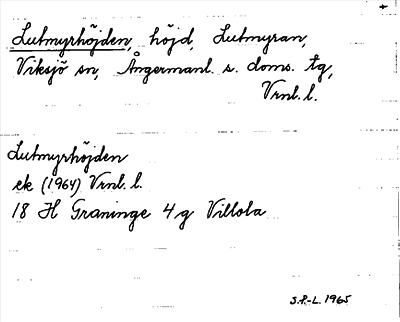 Lutmyrhöjden, höjd, Lutmyran,
Viksjö sn, Ångermanl. s. doms. tg,
Vrnl. l.
Lutmyrhöjden
ek (1964) Vrnl. l.
18 H Graninge 4 g Villola
S.P.-L. 1965